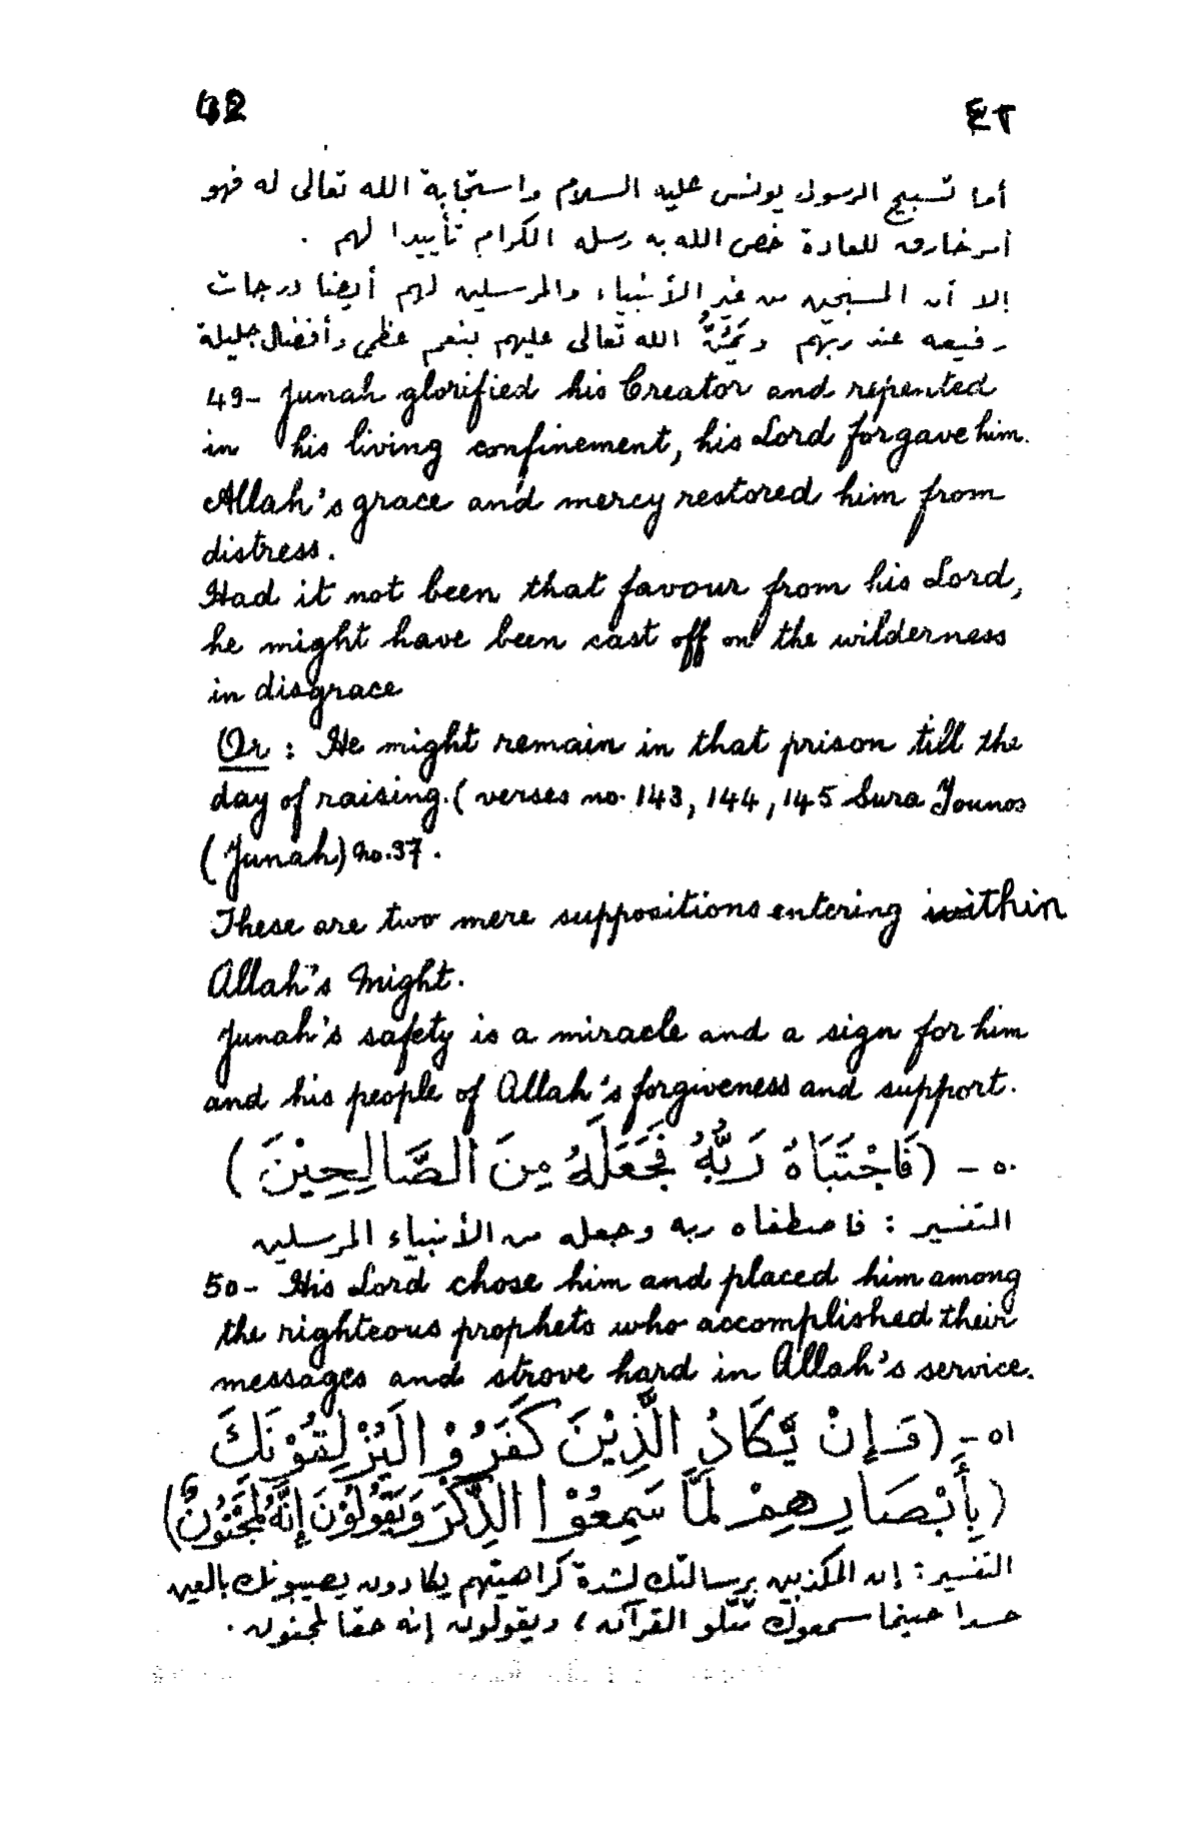 42 ٤٢
أما تسبيح الرسول يونس عليه السلام واستجابة الله تعالى له فهو
أمر خارق للعادة خص الله به رسله الكرام تأييدا لهم .
إلا أن المسبحين من غير الأنبياء والمرسلين لهم أيضا درجات
رفيعه عند ربهم ويَمُنُّ الله تعالى عليهم بنعم عظمى وأفضال جليلة
49- Junah glorified his Creator and repented
in his living confinement, his Lord forgave him.
Allah's grace and mercy restored him from
distress.
Had it not been that favour from his Lord,
he might have been cast off on the wilderness
in disgrace
Or : He might remain in that prison till the
day of raising. ( verses no. 143, 144, 145 Sura Younos
(Junah) no. 37 .
These are two mere suppositions entering within
Allah's Might.
Junah's safety is a miracle and a sign for him
and his people of Allah's forgiveness and support.
٥٠ - (فَاجْتَبَاهُ رَبُّهُ فَجَعَلَهُ مِنَ الصَّالِحِيْنَ )
التفسير : فاصطفاه ربه وجعله من الأنبياء المرسلين
50- His Lord chose him and placed him among
the righteous prophets who accomplished their
messages and strove hard in Allah's service.
٥١ - (وَإِنْ يَّكَادُ الَّذِيْنَ كَفَرُوْا لَيُزْلِقُوْنَكَ
(بِأَبْصَارِهِمْ لَمَّا سَمِعُوْا الذِّكْرَ وَيَقُوْلُوْنَ إِنَّهُ لَمَجْنُوْنٌ)
التفسير : إن المكذبين برسالتك لشدة كراهيتهم يكادون يصيبونك بالعين
حسدا حينما سمعوك تتلو القرآن ، ويقولون إنه حقا لمجنون .